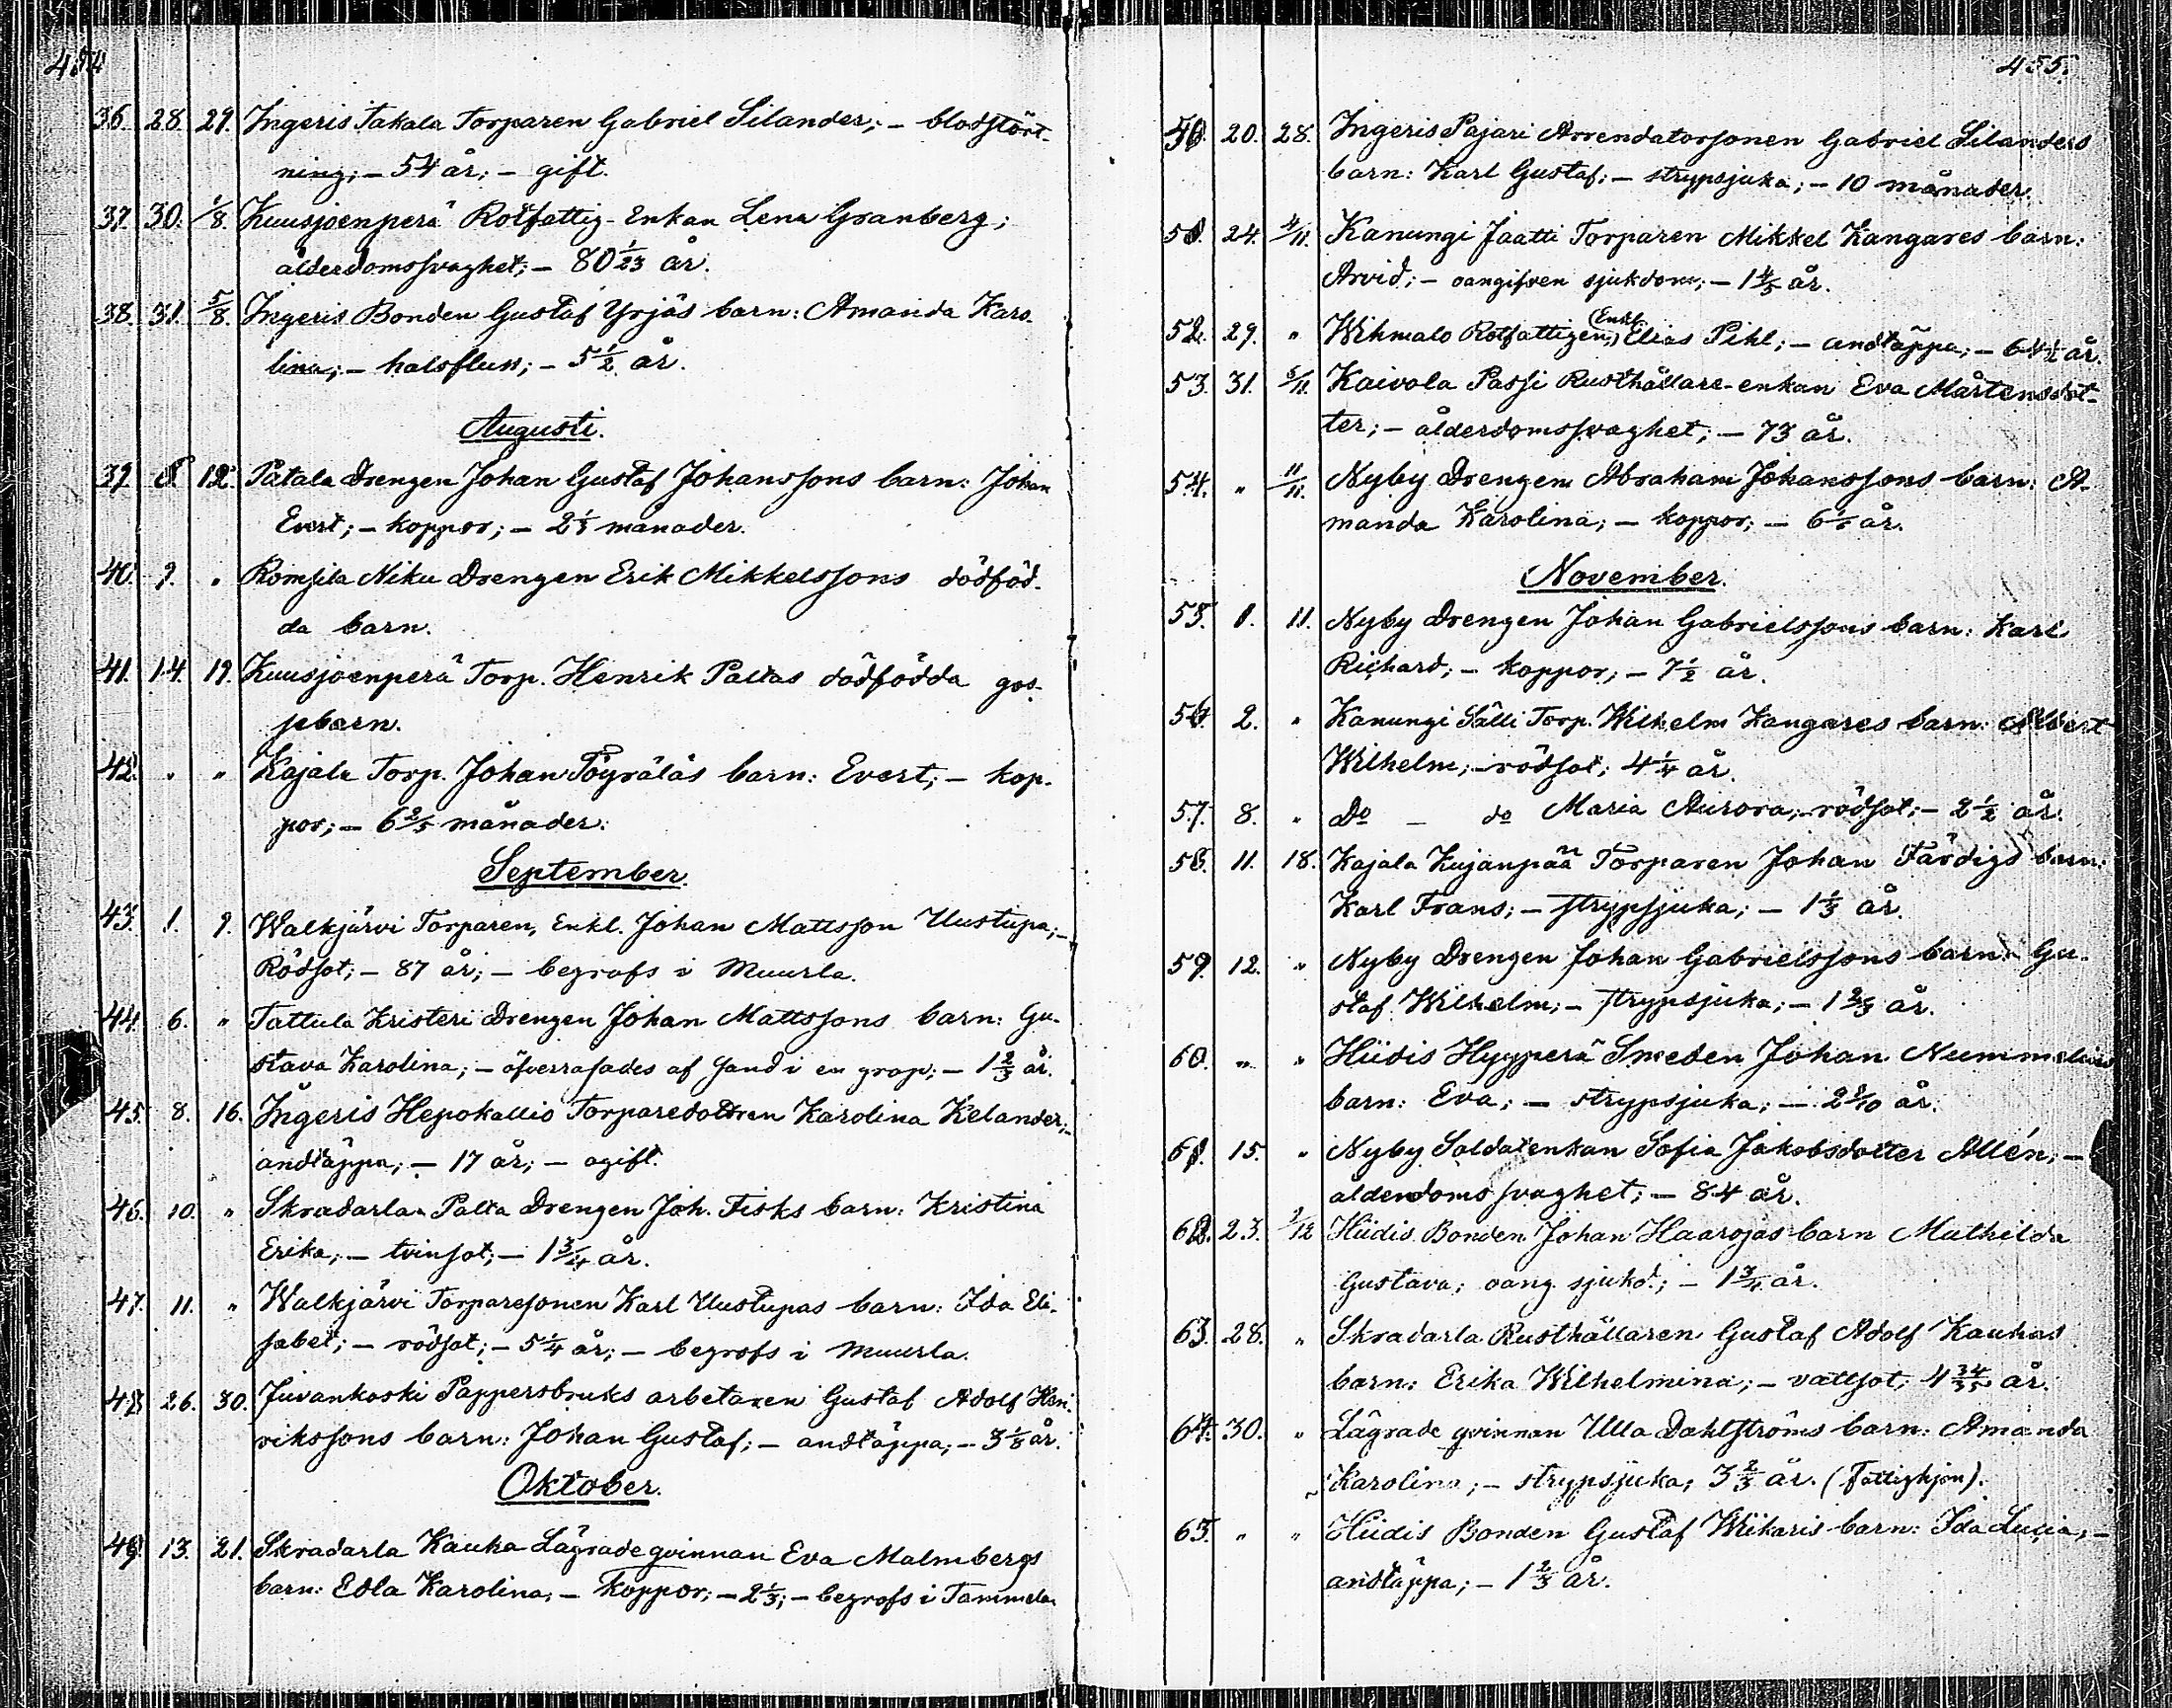 454
36. 28. 29. Ingeris Takala Torparen Gabriel Silander; – blodstört-
ning; – 54 år; – gift.
37. 30. 1/8. Kuusjoenperä Rotfattig-Enkan Lena Granberg;
ålderdomssvaghet; – 80 1/23 år.
38. 31. 5/8. Ingeris Bonden Gustaf Yrjäs barn: Amanda Karo-
lina; – halsfluss; – 5 1/2 år.
Augusti.
39. 8. 12. Patala Drengen Johan Gustaf Johanssons barn: Johan
Evert; – koppor; – 2 1/3 månader.
40. 9. " Romsila Niku Drengen Erik Mikkelssons dödföd-
da barn.
41. 14. 19. Kuusjoenperä Torp. Henrik Paltas dödfödda gos-
sebarn.
42. " " Kajala Torp. Johan Töyräläs barn: Evert; – kop-
por; – 6 2/5 månader.
September.
43. 1. 9. Walkjärvi Torparen, Enkl. Johan Mattsson Uustupa; –
Rödsot; – 87 år; – begrofs i Muurla.
44. 6. " Tattula Kristeri Drengen Johan Mattssons barn: Gu-
stava Karolina; – öfverrasades af sand i en grop; – 1 2/3 år.
45. 8. 16. Ingeris Hepokallio Torparedottren Karolina Kelander; –
andtäppa; – 17 år; – ogift.
46. 10. " Skradarla Palta Drengen Joh. Fisks barn: Kristina
Erika; – tvinsot; – 1 3/4 år.
47. 11. " Walkjärvi Torparesonen Karl Uustupas barn: Ida Eli-
sabet; – rödsot; – 5 1/4 år; – begrofs i Muurla.
48. 26. 30. Juvankoski Pappersbruks arbetaren Gustaf Adolf Hen-
rikssons barn: Johan Gustaf; – andtäppa; – 3 1/8 år.
Oktober.
49. 13. 21. Skradarla Kauha Lägrade qvinnan Eva Malmbergs
barn: Edla Karolina; – koppor; – 2 1/3; – begrofs i Tammela
455.
50. 20. 28. Ingeris Pajari Arrendatorsonen Gabriel Silanders
barn: Karl Gustaf; – strypsjuka; – 10 månader.
51. 24. 4/11. Kanungi Jaatti Torparen Mikkel Kangares barn:
Arvid; – oangifven sjukdom; – 1 4/5 år.
52. 29. " Wihmalo Rotfattigen, (Enkl.) Elias Pihl; – andtäppa; – 64 1/2 år.
53. 31. 5/11. Kaivola Passi Rusthållare-enkan Eva Mårtensdot-
ter; – ålderdomssvaghet; – 73 år.
54. " 11/11. Nyby Drengen Abraham Johanssons barn: A-
manda Karolina; – koppor; – år.
November.
55. 1. 11. Nyby Drengen Johan Gabrielssons barn: Karl
Richard; – koppor; – 7 1/2 år.
56 2. " Kanungi Sälli Torp. Wilhelm Kangares barn: Albert
Wilhelm; – rödsot; 4 1/4 år.
57. 8. " Do – do Maria Aurora; – rödsot; – 2 1/2 år.
58. 11. 18. Kajala Kujanpää Torparen Johan Färdigs barn:
Karl Frans; – strypsjuka; – 1 1/3 år.
59. 12. " Nyby Drengen Johan Gabrielssons barn: Gu-
staf Wilhelm; – strypsjuka; – år.
60. " " Hiidis Hyypperä Smeden Johan Nummelins
barn: Eva; – strypsjuka; – år.
61. 15. " Nyby Soldatenkan Sofia Jakobsdotter Allén; –
ålderdomssvaghet; – 84 år.
62. 23. 2/12 Hiidis Bonden Johan Haarojas barn Mathilda
Gustava; oang. sjukd.; – 1 3/4 år.
63. 28. " Skradarla Rusthållaren Gustaf Adolf Kauhas
barn: Erika Wilhelmina; – vattsot; 4 34/35 år.
64. 30. " Lägrade qvinnan Ulla Dahlströms barn: Amanda
Karolina; – strypsjuka; 3 2/3 år. (Fattighjon).
65. " " Hiidis Bonden Gustaf Wiikaris barn: Ida Lucia; –
andtäppa; – 1 2/3 år.